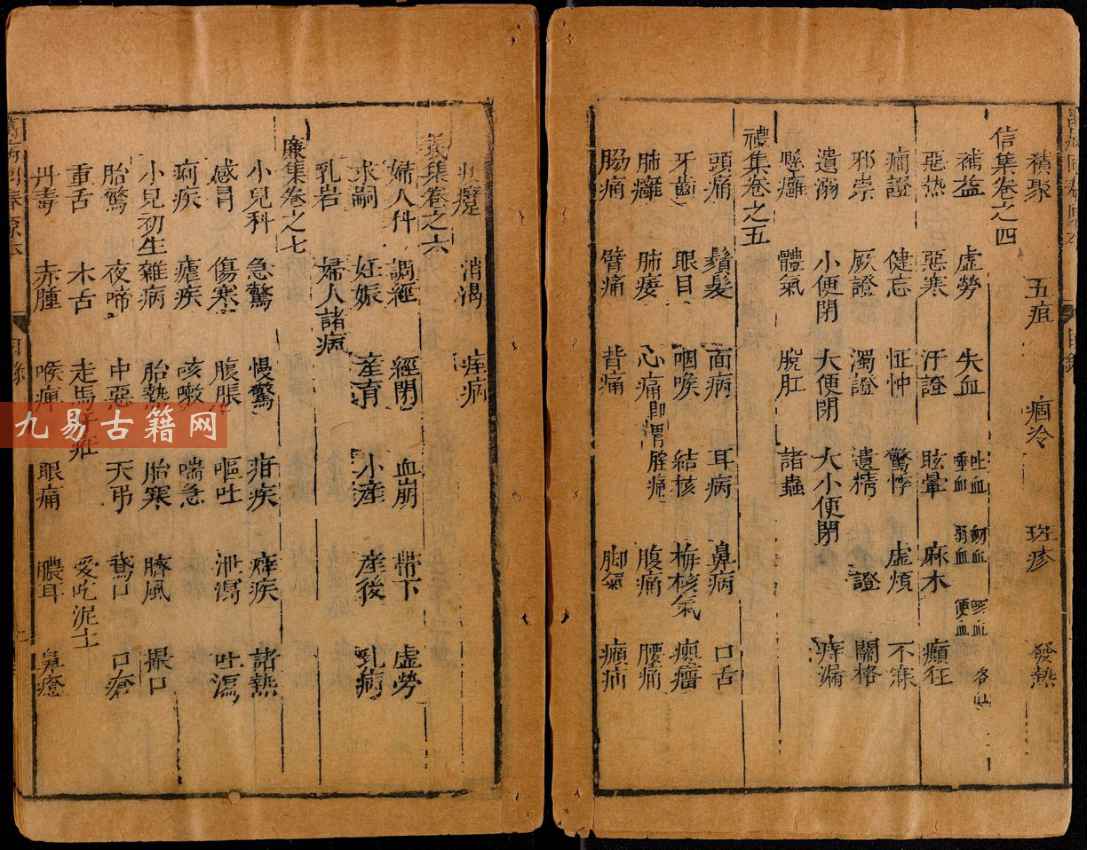 積聚 五疸 痼冷 斑疹 發熱
信集卷之四
補益 虛勞 失血 吐血 衂血 咳血 各血
惡熱 惡寒 汗證 眩暈 麻木 癲狂
癇證 健忘 怔忡 驚悸 虛煩 不寐
邪祟 厥證 濁證 遺精 證 關格
遺溺 小便閉 大便閉 大小便閉 痔漏
懸癰 體氣 脫肛 諸蟲
禮集卷之五
頭痛 鬚髮 面病 耳病 鼻病 口舌
牙齒 眼目 咽喉 結核 梅核氣 癭瘤
肺癰 肺痿 心痛即胃脘痛 腹痛 腰痛
腸痛 臂痛 背痛 脚氣 癩病
消渴 痓病
義集卷之六
婦人科 調經 經閉 血崩 帶下 虛勞
求嗣 妊娠 產育 小產 產後 乳病
乳岩 婦人諸病
廉集卷之七
小兒科 急驚 慢驚 疳疾 痺疾 諸熱
感冒 傷寒 腹脹 嘔吐 泄瀉 吐瀉
痢疾 瘧疾 咳嗽 喘急
小兒初生雜病 胎熱 胎寒 臍風 撮口
胎驚 夜啼 中惡 天弔 鵞口 口瘡
重舌 木舌 走馬牙疳 愛吃泥土
丹毒 赤腫 喉痹 眼痛 膿耳 鼻瘡
目錄
九易古籍网